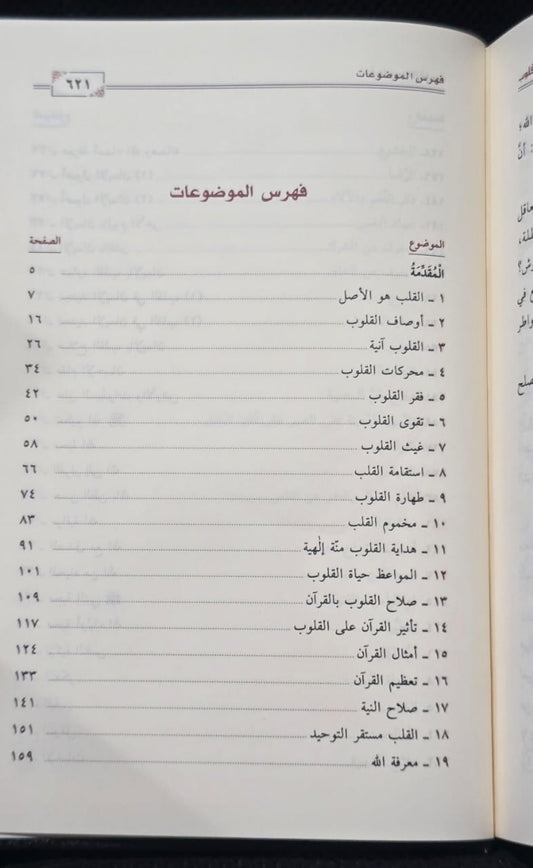 فهرس الموضوعات ٦٢١
فهرس الموضوعات
الموضوع الصفحة
الْمُقَدِّمَةُ ٥
١ ـ القلب هو الأصل ٧
٢ ـ أوصاف القلوب ١٦
٣ ـ القلوب آنية ٢٦
٤ ـ محركات القلوب ٣٤
٥ ـ فقر القلوب ٤٢
٦ ـ تقوى القلوب ٥٠
٧ ـ غيث القلوب ٥٨
٨ ـ استقامة القلب ٦٦
٩ ـ طهارة القلوب ٧٤
١٠ ـ مخموم القلب ٨٣
١١ ـ هداية القلوب منّة إلٰهية ٩١
١٢ ـ المواعظ حياة القلوب ١٠١
١٣ ـ صلاح القلوب بالقرآن ١٠٩
١٤ ـ تأثير القرآن على القلوب ١١٧
١٥ ـ أمثال القرآن ١٢٤
١٦ ـ تعظيم القرآن ١٣٣
١٧ ـ صلاح النية ١٤١
١٨ ـ القلب مستقر التوحيد ١٥١
١٩ ـ معرفة الله ١٥٩